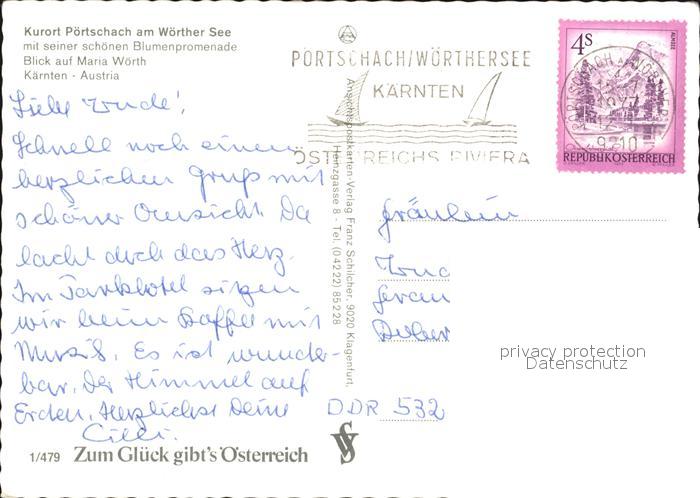 Kurort Pörtschach am Wörther See
mit seiner schönen Blumenpromenade
Blick auf Maria Wörth
Kärnten - Austria
Liebe Trude!
Schnell noch einen
herzlichen Gruß mit
schöner Aussicht. Da
lacht doch das Herz.
Im Parkhotel sitzen
wir beim Kaffee mit
Musik. Es ist wunder-
bar. Der Himmel auf
Erden. Herzlichst Deine
Cilli.
1/479 Zum Glück gibt's Österreich
Ansichtspostkarten-Verlag Franz Schilcher, 9020 Klagenfurt,
Heinzgasse 8 - Tel. (04222) 85228
PÖRTSCHACH/WÖRTHERSEE
KÄRNTEN
ÖSTERREICHS RIVIERA
4S
ALMSEE
9210
REPUBLIK ÖSTERREICH
Fräulein
DDR 532
privacy protection
Datenschutz